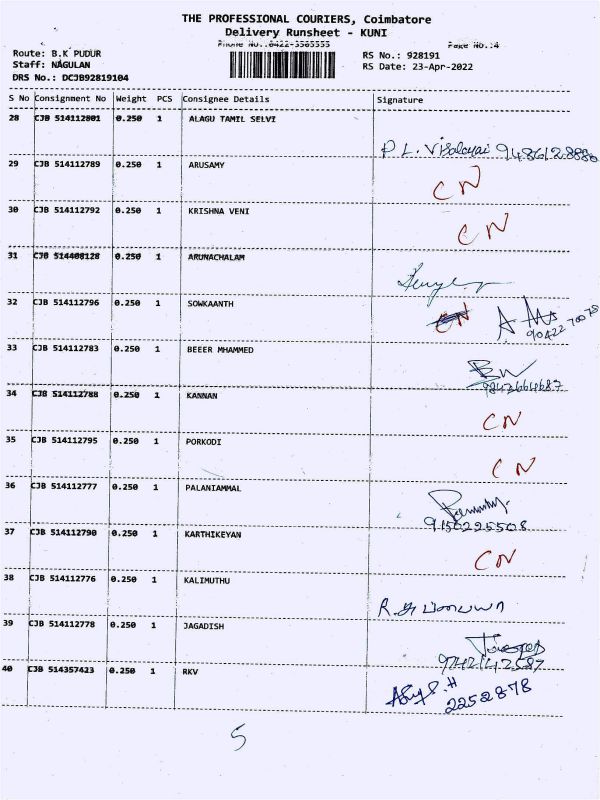 THE PROFESSIONAL COURIERS, Coimbatore
Delivery Runsheet - KUNI
Phone No.:0422-3505555 Page No.:4
Route: B.K PUDUR RS No.: 928191
Staff: NAGULAN RS Date: 23-Apr-2022
DRS No.: DCJB92819104
S No Consignment No Weight PCS Consignee Details Signature
28 CJB 514112801 0.250 1 ALAGU TAMIL SELVI
P.L. Visalayai 9486128880
29 CJB 514112789 0.250 1 ARUSAMY
CN
30 CJB 514112792 0.250 1 KRISHNA VENI
CN
31 CJB 514408128 0.250 1 ARUNACHALAM
32 CJB 514112796 0.250 1 SOWKAANTH
CN
90422 70075
33 CJB 514112783 0.250 1 BEEER MHAMMED
9843664687
34 CJB 514112788 0.250 1 KANNAN
CN
35 CJB 514112795 0.250 1 PORKODI
CN
36 CJB 514112777 0.250 1 PALANIAMMAL
9150295508
37 CJB 514112790 0.250 1 KARTHIKEYAN
CN
38 CJB 514112776 0.250 1 KALIMUTHU
39 CJB 514112778 0.250 1 JAGADISH
9742142587
40 CJB 514357423 0.250 1 RKV
2252878
5